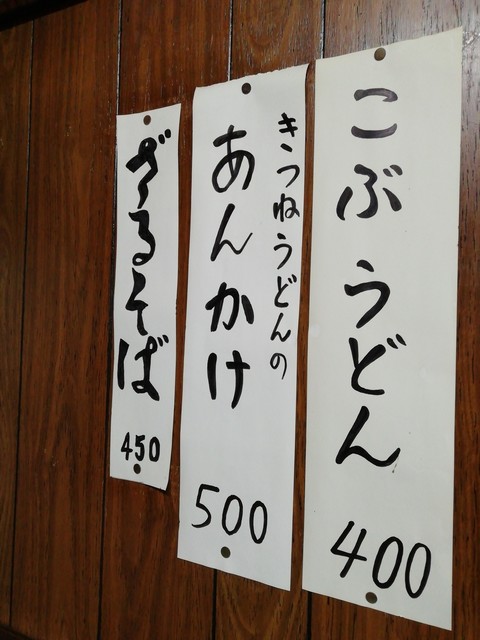 こぶうどん
400
きつねうどんの
あんかけ
500
ざるそば
450